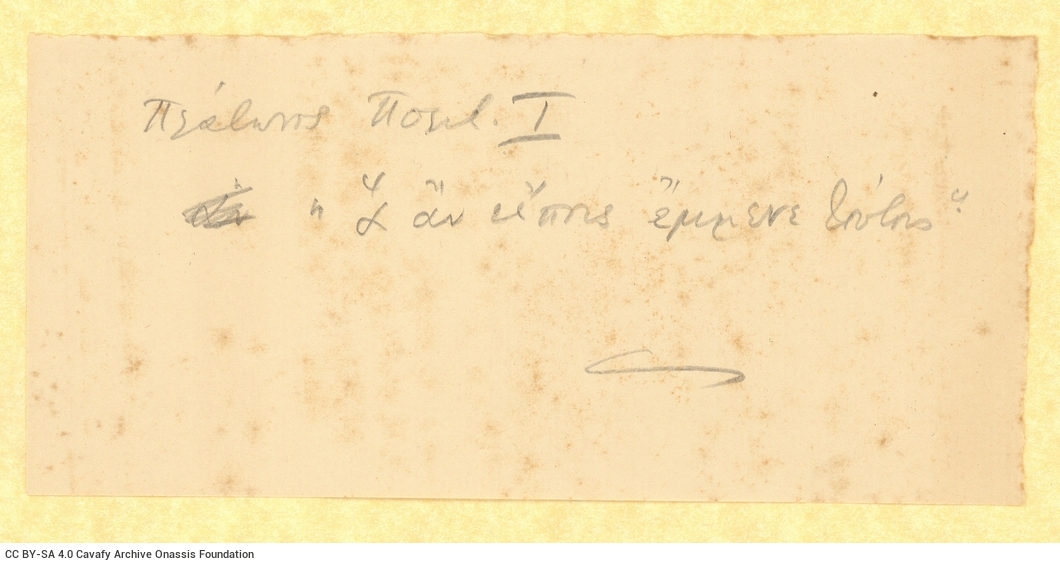 Πλάτωνος Πολιτ. I
" ἃ ἂν εἴπῃς ἔμμενε τούτοις "
CC BY-SA 4.0 Cavafy Archive Onassis Foundation